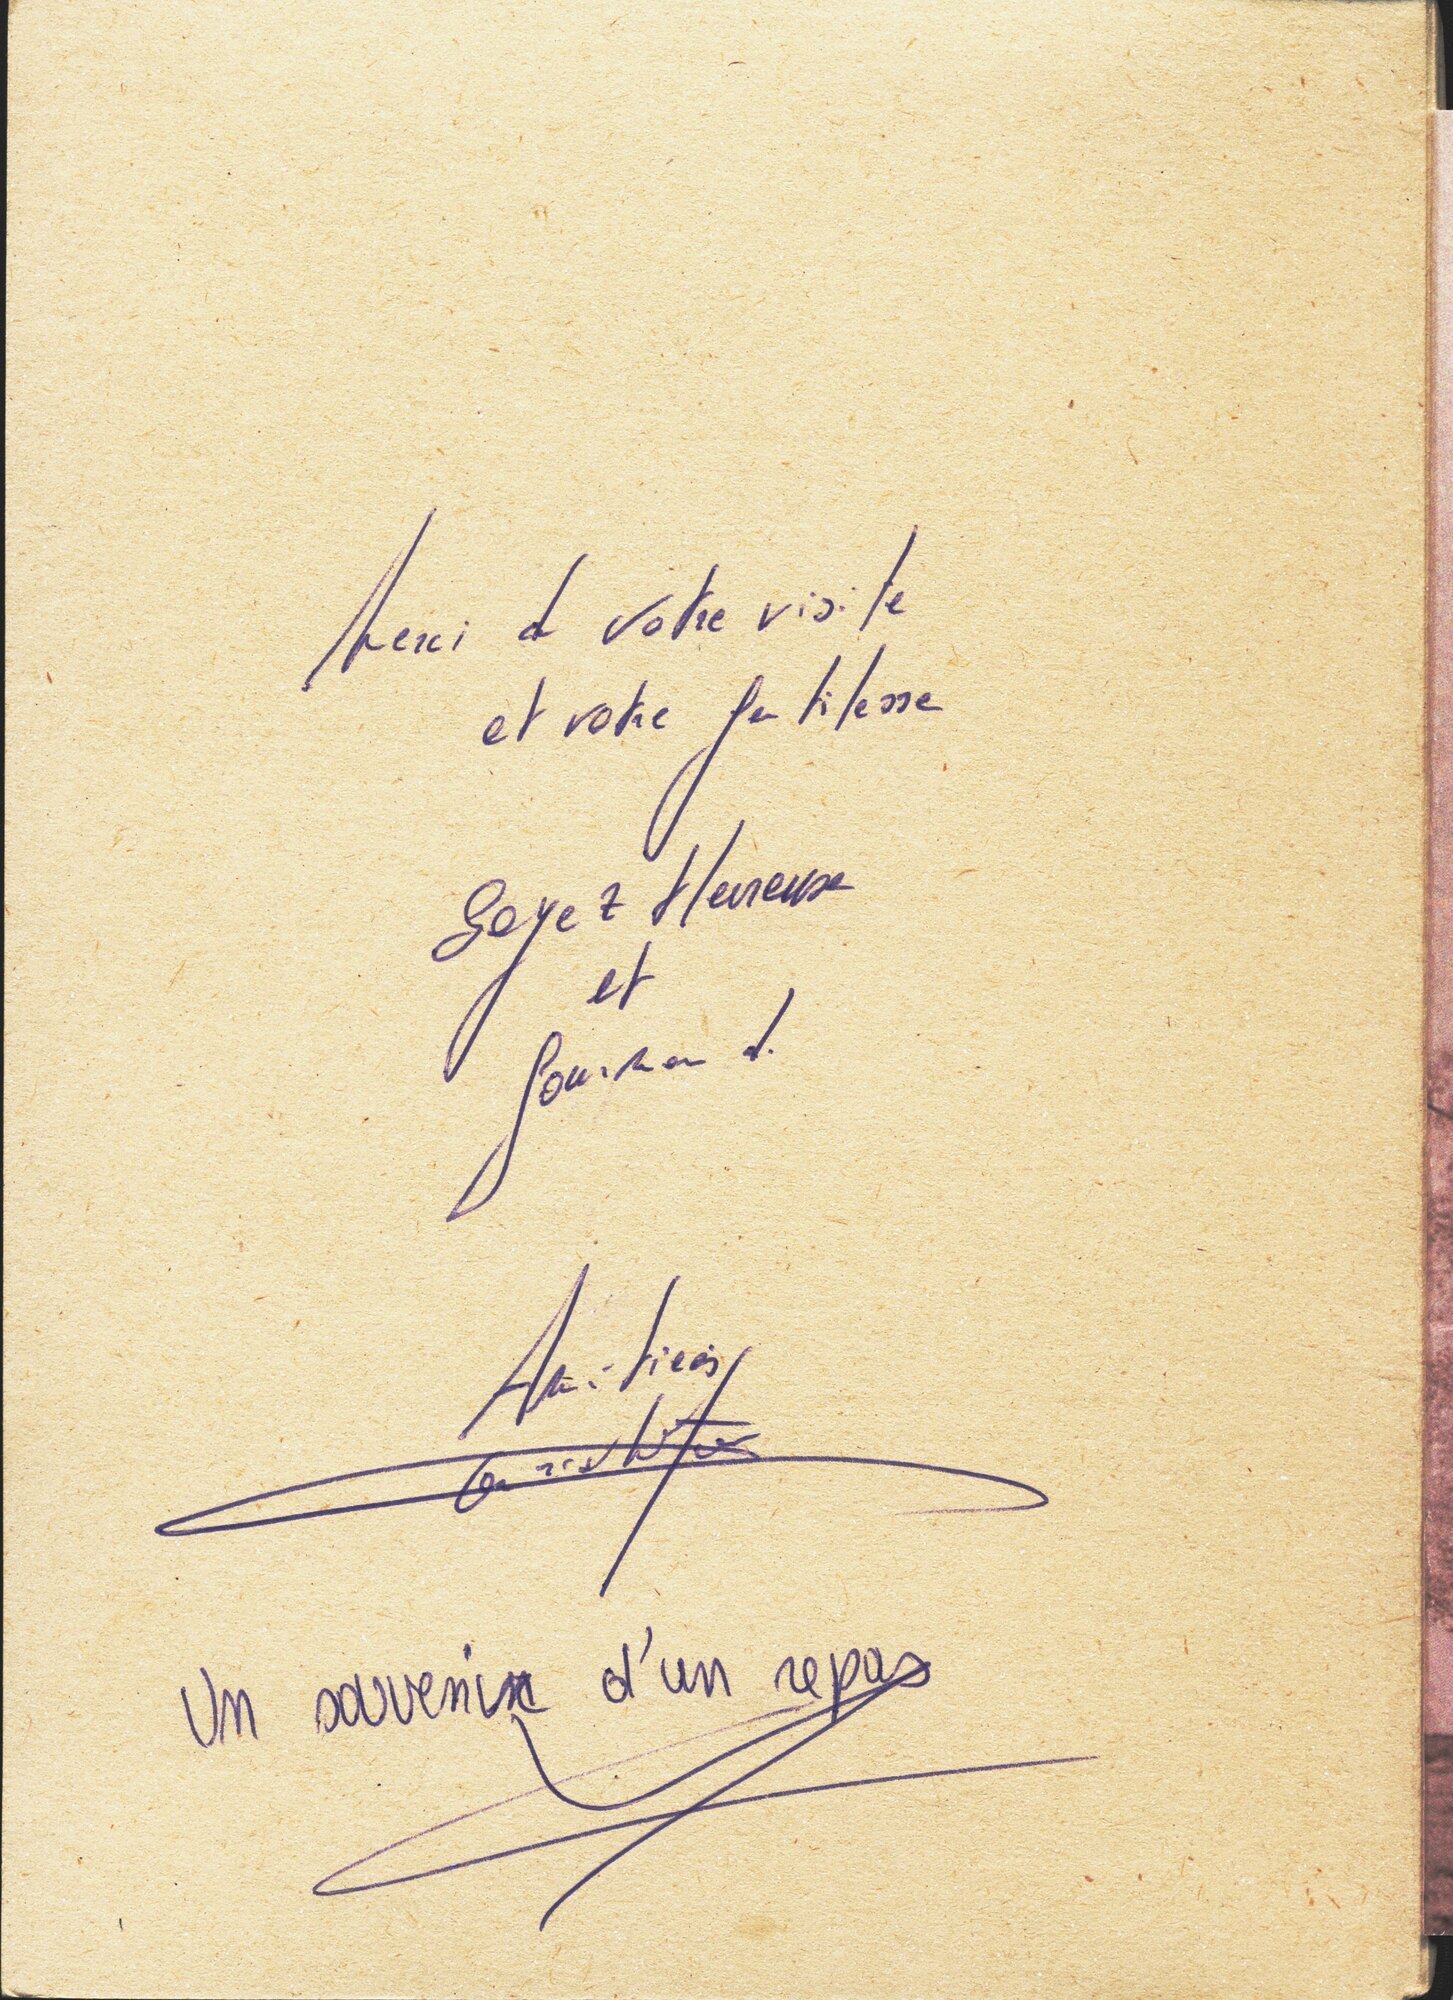 Merci d votre visite
et votre gentilesse
Soyez Heureuse
et
gourmand.
Amitiés
Un souvenir d'un repas